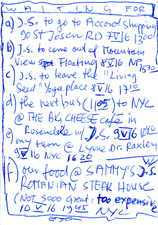 WAITING FOR
a) J.S. to go to Accord Shopping
30 ST Josen RD 7 V 16 1300
b) J.S. to come out of Mountain
View Floating 8 V 16 NP 1530
c) J.S. to leave the "Living
Seed" Yoga place 8 V 16 1710
d) the next bus (1105) to NYC
@ THE BIG CHEESE cafe in
Rosendale w/ J.S. 9 V 16 1040
e) my turn @ Lynne Dr. Raxley
9 V 16 NYC 1620
f) our food @ SAMMY'S J.S.
ROMANIAN STEAK HOUSE
(NOT SO GREAT: too expensive
10 V 16 1945 NYC